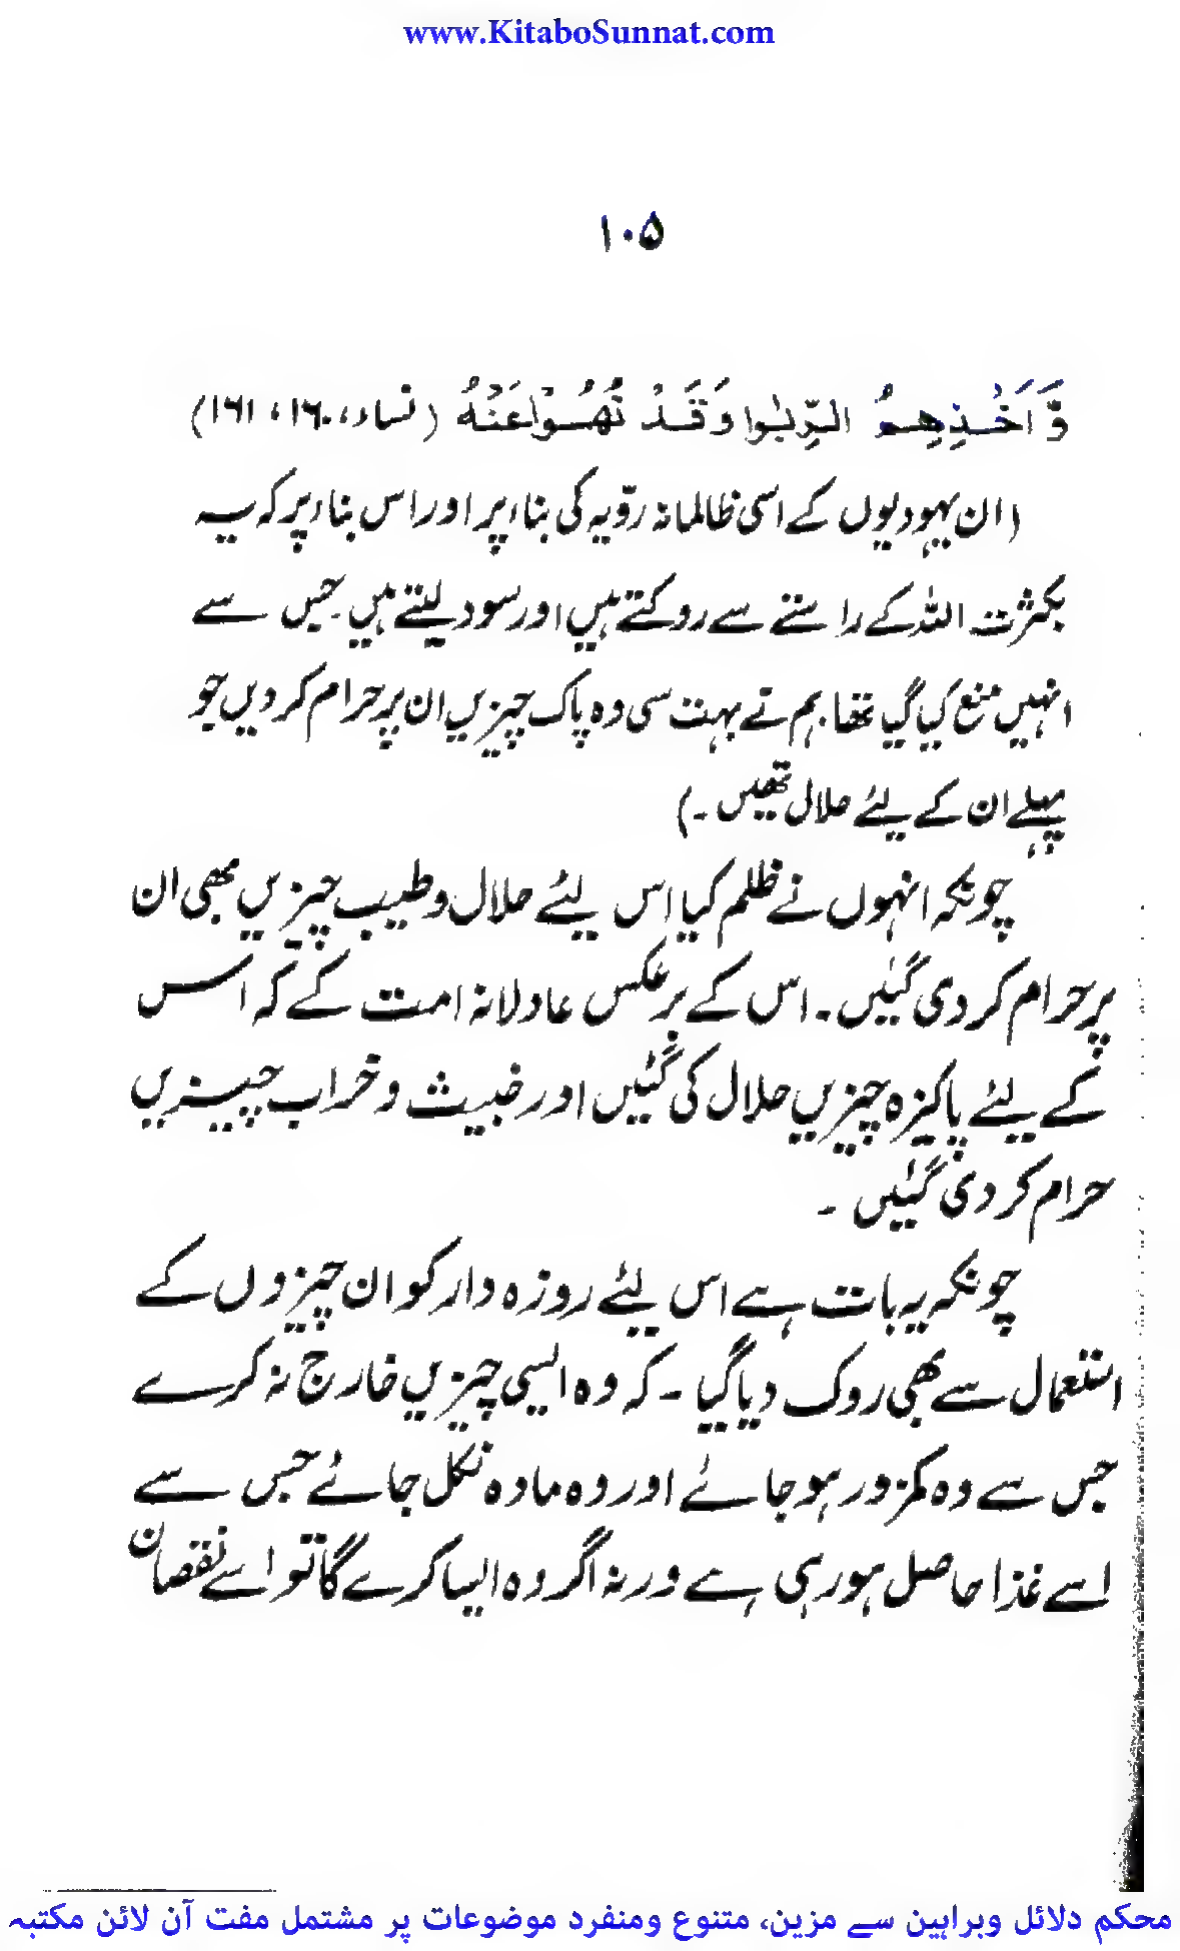 www.KitaboSunnat.com
۱۰۵
وَّاَخْذِهِمُ الرِّبٰوا وَقَدْ نُهُوْا عَنْهُ (نساء، ۱۶۰، ۱۶۱)
(ان یہودیوں کے اسی ظالمانہ رویّہ کی بناء پر اور اس بناء پر کہ یہ
بکثرت اللہ کے راستے سے روکتے ہیں اور سود لیتے ہیں۔ جس سے
انہیں منع کیا گیا تھا۔ ہم نے بہت سی وہ پاک چیزیں ان پر حرام کر دیں جو
پہلے ان کے لئے حلال تھیں۔)
چونکہ انہوں نے ظلم کیا اس لئے حلال و طیب چیزیں بھی ان
پر حرام کر دی گئیں۔ اس کے برعکس عادلانہ امت کے کہ اس
کے لئے پاکیزہ چیزیں حلال کی گئیں اور خبیث و خراب چیزیں
حرام کر دی گئیں ۔
چونکہ یہ بات ہے اس لئے روزہ دار کو ان چیزوں کے
استعمال سے بھی روک دیا گیا ۔ کہ وہ ایسی چیزیں خارج نہ کرے
جس سے وہ کمزور ہو جائے اور وہ مادہ نکل جائے جس سے
اسے غذا حاصل ہو رہی ہے ورنہ اگر وہ ایسا کرے گا تو اسے نقصان
محکم دلائل وبراہین سے مزین، متنوع ومنفرد موضوعات پر مشتمل مفت آن لائن مکتبہ